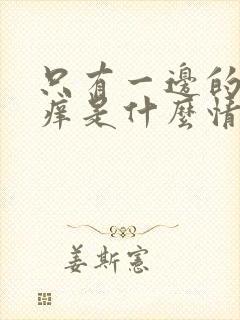 只有一边的
痒是什麼情
姜斯憲